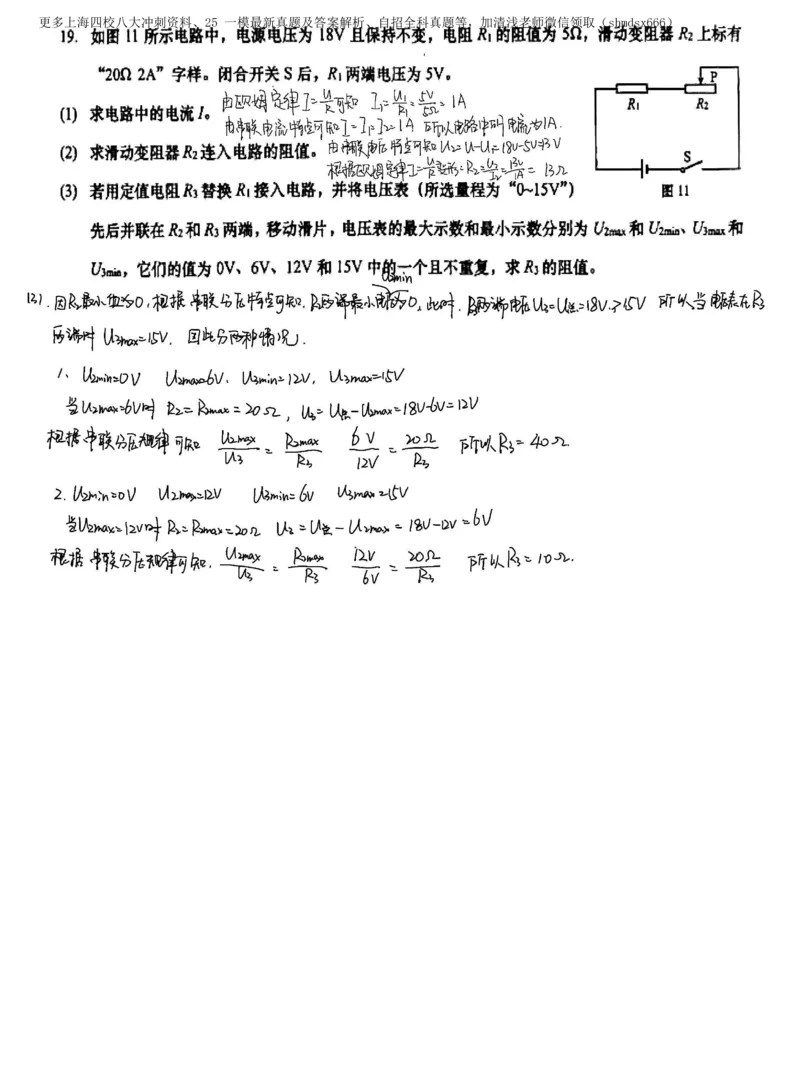 更多上海四校八大冲刺资料、25 一模最新真题及答案解析、自招全科真题等，加清浅老师微信领取（shmdsx666）
19. 如图 11 所示电路中，电源电压为 18V 且保持不变，电阻 R₁ 的阻值为 5Ω，滑动变阻器 R₂ 上标有
“20Ω 2A”字样。闭合开关 S 后，R₁ 两端电压为 5V。
(1) 求电路中的电流 I。
由欧姆定律 I=U/R 可知 I₁=U₁/R₁=5V/5Ω=1A
由串联电流特点可知 I=I₁=I₂=1A 所以电路中的电流为1A.
(2) 求滑动变阻器 R₂ 连入电路的阻值。
由串联电压特点可知 U₂=U-U₁=18V-5V=13V
根据欧姆定律 I=U/R 变形=R₂=U₂/I₂=13V/1A=13Ω
(3) 若用定值电阻 R₃ 替换 R₁ 接入电路，并将电压表（所选量程为“0~15V”）
先后并联在 R₂ 和 R₃ 两端，移动滑片，电压表的最大示数和最小示数分别为 U₂max 和 U₂min、U₃max 和
U₃min，它们的值为 0V、6V、12V 和 15V 中的一个且不重复，求 R₃ 的阻值。
P
R₁ R₂
S
图 11
U₂min
(3). 因R₂最小值为0, 根据串联分压特点可知. R₂两端最小电压为0, 此时, R₃两端电压U₃=U总=18V>15V 所以当电压表在R₃
两端时 U₃max=15V. 因此分两种情况.
1、U₂min=0V U₂max=6V. U₃min=12V, U₃max=15V
当U₂max=6V时 R₂=R₂max=20Ω, U₃=U总-U₂max=18V-6V=12V
根据串联分压规律可知 U₂max/U₃=R₂max/R₃ 6V/12V=20Ω/R₃ 所以R₃=40Ω.
2. U₂min=0V U₂max=12V U₃min=6V U₃max=15V
当U₂max=12V时 R₂=R₂max=20Ω U₃=U总-U₂max=18V-12V=6V
根据串联分压规律可知. U₂max/U₃=R₂max/R₃ 12V/6V=20Ω/R₃ 所以R₃=10Ω.